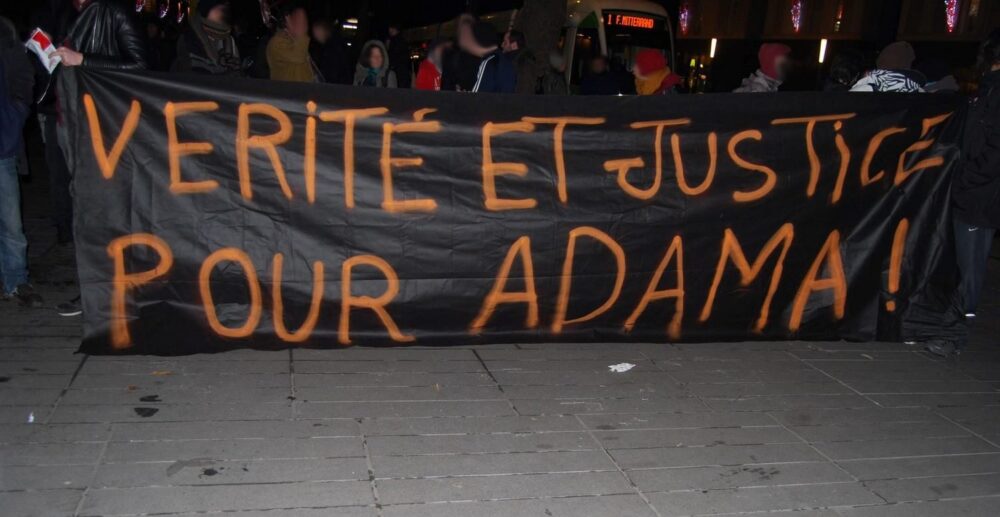 1 F. MITTERRAND
VERITÉ ET JUSTICE
POUR ADAMA !